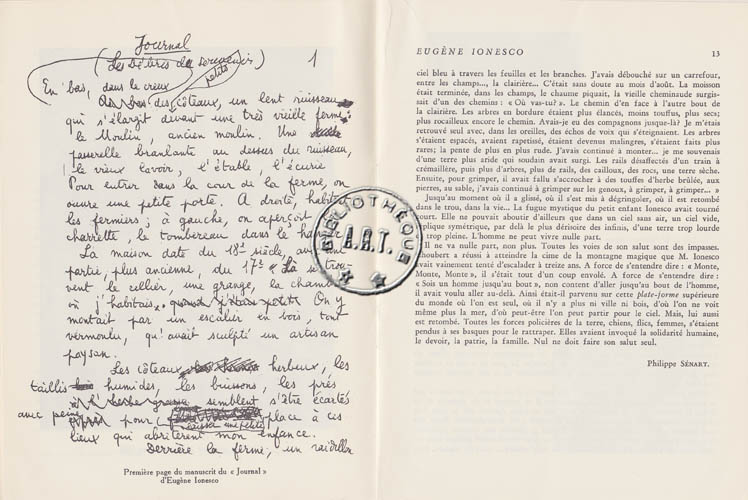 Journal
(Les Débris de souvenirs) 1
petits
En bas, dans le creux
des côteaux, un lent ruisseau
qui s'élargit devant une très vieille ferme :
le Moulin, ancien moulin. Une
passerelle branlante au dessus du ruisseau,
le vieux lavoir, l'étable, l'écurie
Pour entrer dans la cour de la ferme, on
ouvre une petite porte. A droite, habitent
les fermiers ; à gauche, on aperçoit
charrette, le tombereau dans le hangar
La maison date du 18e siècle, avec une
partie, plus ancienne, du 17e. Là se trou-
vent le cellier, une grange, la chambre
où j'habitais. quand j'étais petit On y
montait par un escalier en bois, tout
vermoulu, qu'avait sculpté un artisan
paysan.
Les côteaux herbeux, les
taillis humides, les buissons, les prés
à l'herbe grasse semblent s'être écartés
avec peine pour ( place à ces
laisser une petite
lieux qui abritèrent mon enfance.
Derrière la ferme, un raidillon
Première page du manuscrit du « Journal »
d'Eugène Ionesco
BIBLIOTHÈQUE
A.R.T.
EUGÈNE IONESCO 13
ciel bleu à travers les feuilles et les branches. J'avais débouché sur un carrefour,
entre les champs..., la clairière... C'était sans doute au mois d'août. La moisson
était terminée, dans les champs, le chaume piquait, la vieille cheminaude surgis-
sait d'un des chemins : « Où vas-tu? ». Le chemin d'en face à l'autre bout de
la clairière. Les arbres en bordure étaient plus élancés, moins touffus, plus secs;
plus rocailleux encore le chemin. Avais-je eu des compagnons jusque-là? Je m'étais
retrouvé seul avec, dans les oreilles, des échos de voix qui s'éteignaient. Les arbres
s'étaient espacés, avaient rapetissé, étaient devenus malingres, s'étaient faits plus
rares; la pente de plus en plus rude. J'avais continué à monter... je me souvenais
d'une terre plus aride qui soudain avait surgi. Les rails désaffectés d'un train à
crémaillère, puis plus d'arbres, plus de rails, des cailloux, des rocs, une terre sèche.
Ensuite, pour grimper, il avait fallu s'accrocher à des touffes d'herbe brûlée, aux
pierres, au sable, j'avais continué à grimper sur les genoux, à grimper, à grimper... »
Jusqu'au moment où il a glissé, où il s'est mis à dégringoler, où il est retombé
dans le trou, dans la vie... La fugue mystique du petit enfant Ionesco avait tourné
court. Elle ne pouvait aboutir d'ailleurs que dans un ciel sans air, un ciel vide,
réplique symétrique, par delà le plus dérisoire des infinis, d'une terre trop lourde
et trop pleine. L'homme ne peut vivre nulle part.
Il ne va nulle part, non plus. Toutes les voies de son salut sont des impasses.
Choubert a réussi à atteindre la cime de la montagne magique que M. Ionesco
avait vainement tenté d'escalader à treize ans. A force de s'entendre dire : « Monte,
Monte, Monte », il s'était tout d'un coup envolé. A force de s'entendre dire :
« Sois un homme jusqu'au bout », non content d'aller jusqu'au bout de l'homme,
il avait voulu aller au-delà. Ainsi était-il parvenu sur cette plate-forme supérieure
du monde où l'on est seul, où il n'y a plus ni ville ni bois, d'où l'on ne voit
même plus la mer, d'où peut-être l'on peut partir pour le ciel. Mais, lui aussi
est retombé. Toutes les forces policières de la terre, chiens, flics, femmes, s'étaient
pendus à ses basques pour le rattraper. Elles avaient invoqué la solidarité humaine,
le devoir, la patrie, la famille. Nul ne doit faire son salut seul.
Philippe SÉNART.